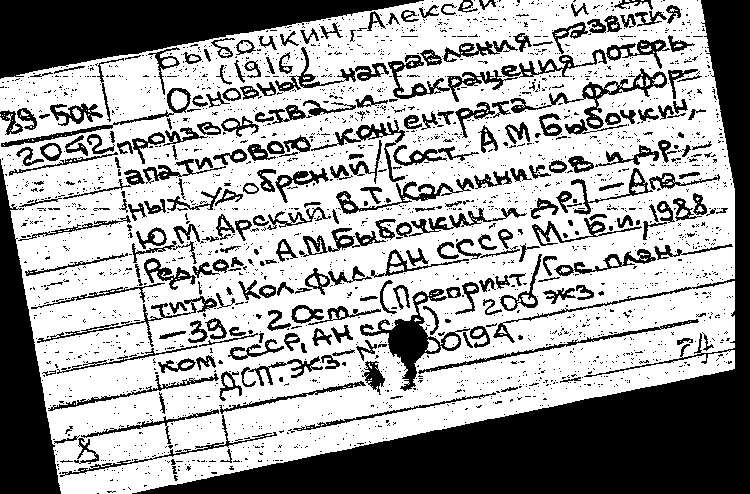 Быбочкин, Алексей
(1916)
89-50к
2042
Основные направления развития
производства и сокращения потерь
апатитового концентрата и фосфор-
ных удобрений/[Сост. А.М.Быбочкин,
Ю.М. Арский, В.Т. Калинников и др.;
Редкол.: А.М.Быбочкин и др.] – Апа-
титы: Кол. фил. АН СССР; М.: Б.и., 1988.
– 39 с.; 20 см. – (Препринт / Гос. план.
ком. СССР, АН СССР). 200 экз.
ДСП. Экз. 00194.